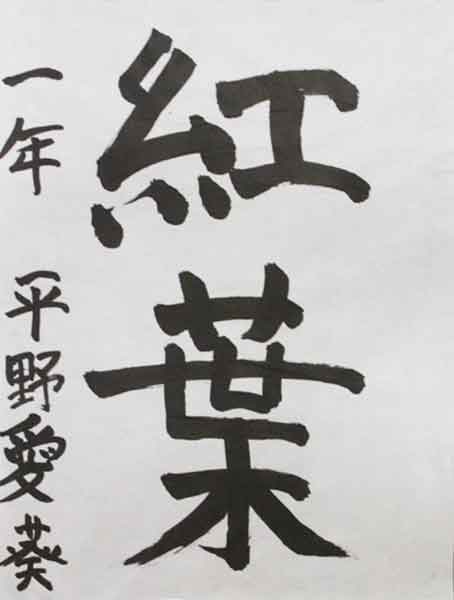 紅葉
一年 平野愛葵